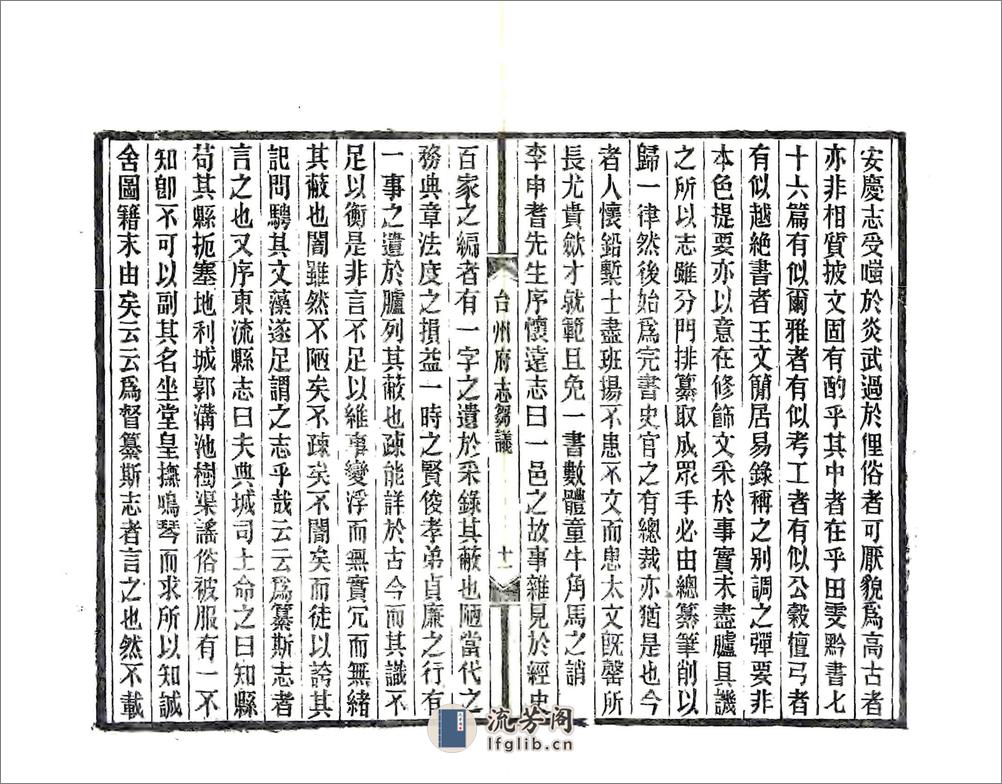 安慶志受嗤於炎武過於俚俗者可厭貌爲高古者
亦非相質披文固有酌乎其中者在乎田雯黔書七
十六篇有似爾雅者有似考工者有似公穀檀弓者
有似越絶書者王文簡居易錄稱之別調之彈要非
本色提要亦以意在修飾文采於事實未盡臚具譏
之所以志雖分門排纂取成眾手必由總纂筆削以
歸一律然後始爲完書史官之有總裁亦猶是也今
者人懷鉛槧士盡班揚不患不文而患太文旣罄所
長尤貴斂才就範且免一書數體童牛角馬之誚
李申耆先生序懷遠志曰一邑之故事雜見於經史
台州府志芻議
十一
百家之編者有一字之遺於采錄其蔽也陋當代之
務典章法度之損益一時之賢俊孝弟貞廉之行有
一事之遺於臚列其蔽也疎能詳於古今而其識不
足以衡是非言不足以維事變浮而無實冗而無緒
其蔽也闇雖然不陋矣不疎矣不闇矣而徒以誇其
記問騁其文藻遂足謂之志乎哉云云爲纂斯志者
言之也又序東流縣志曰夫典城司土命之曰知縣
苟其縣扼塞地利城郭溝池樹渠謠俗被服有一不
知卽不可以副其名坐堂皇撫鳴琴而求所以知誠
舍圖籍末由矣云云爲督纂斯志者言之也然不載
流芳阁
lfglib.cn